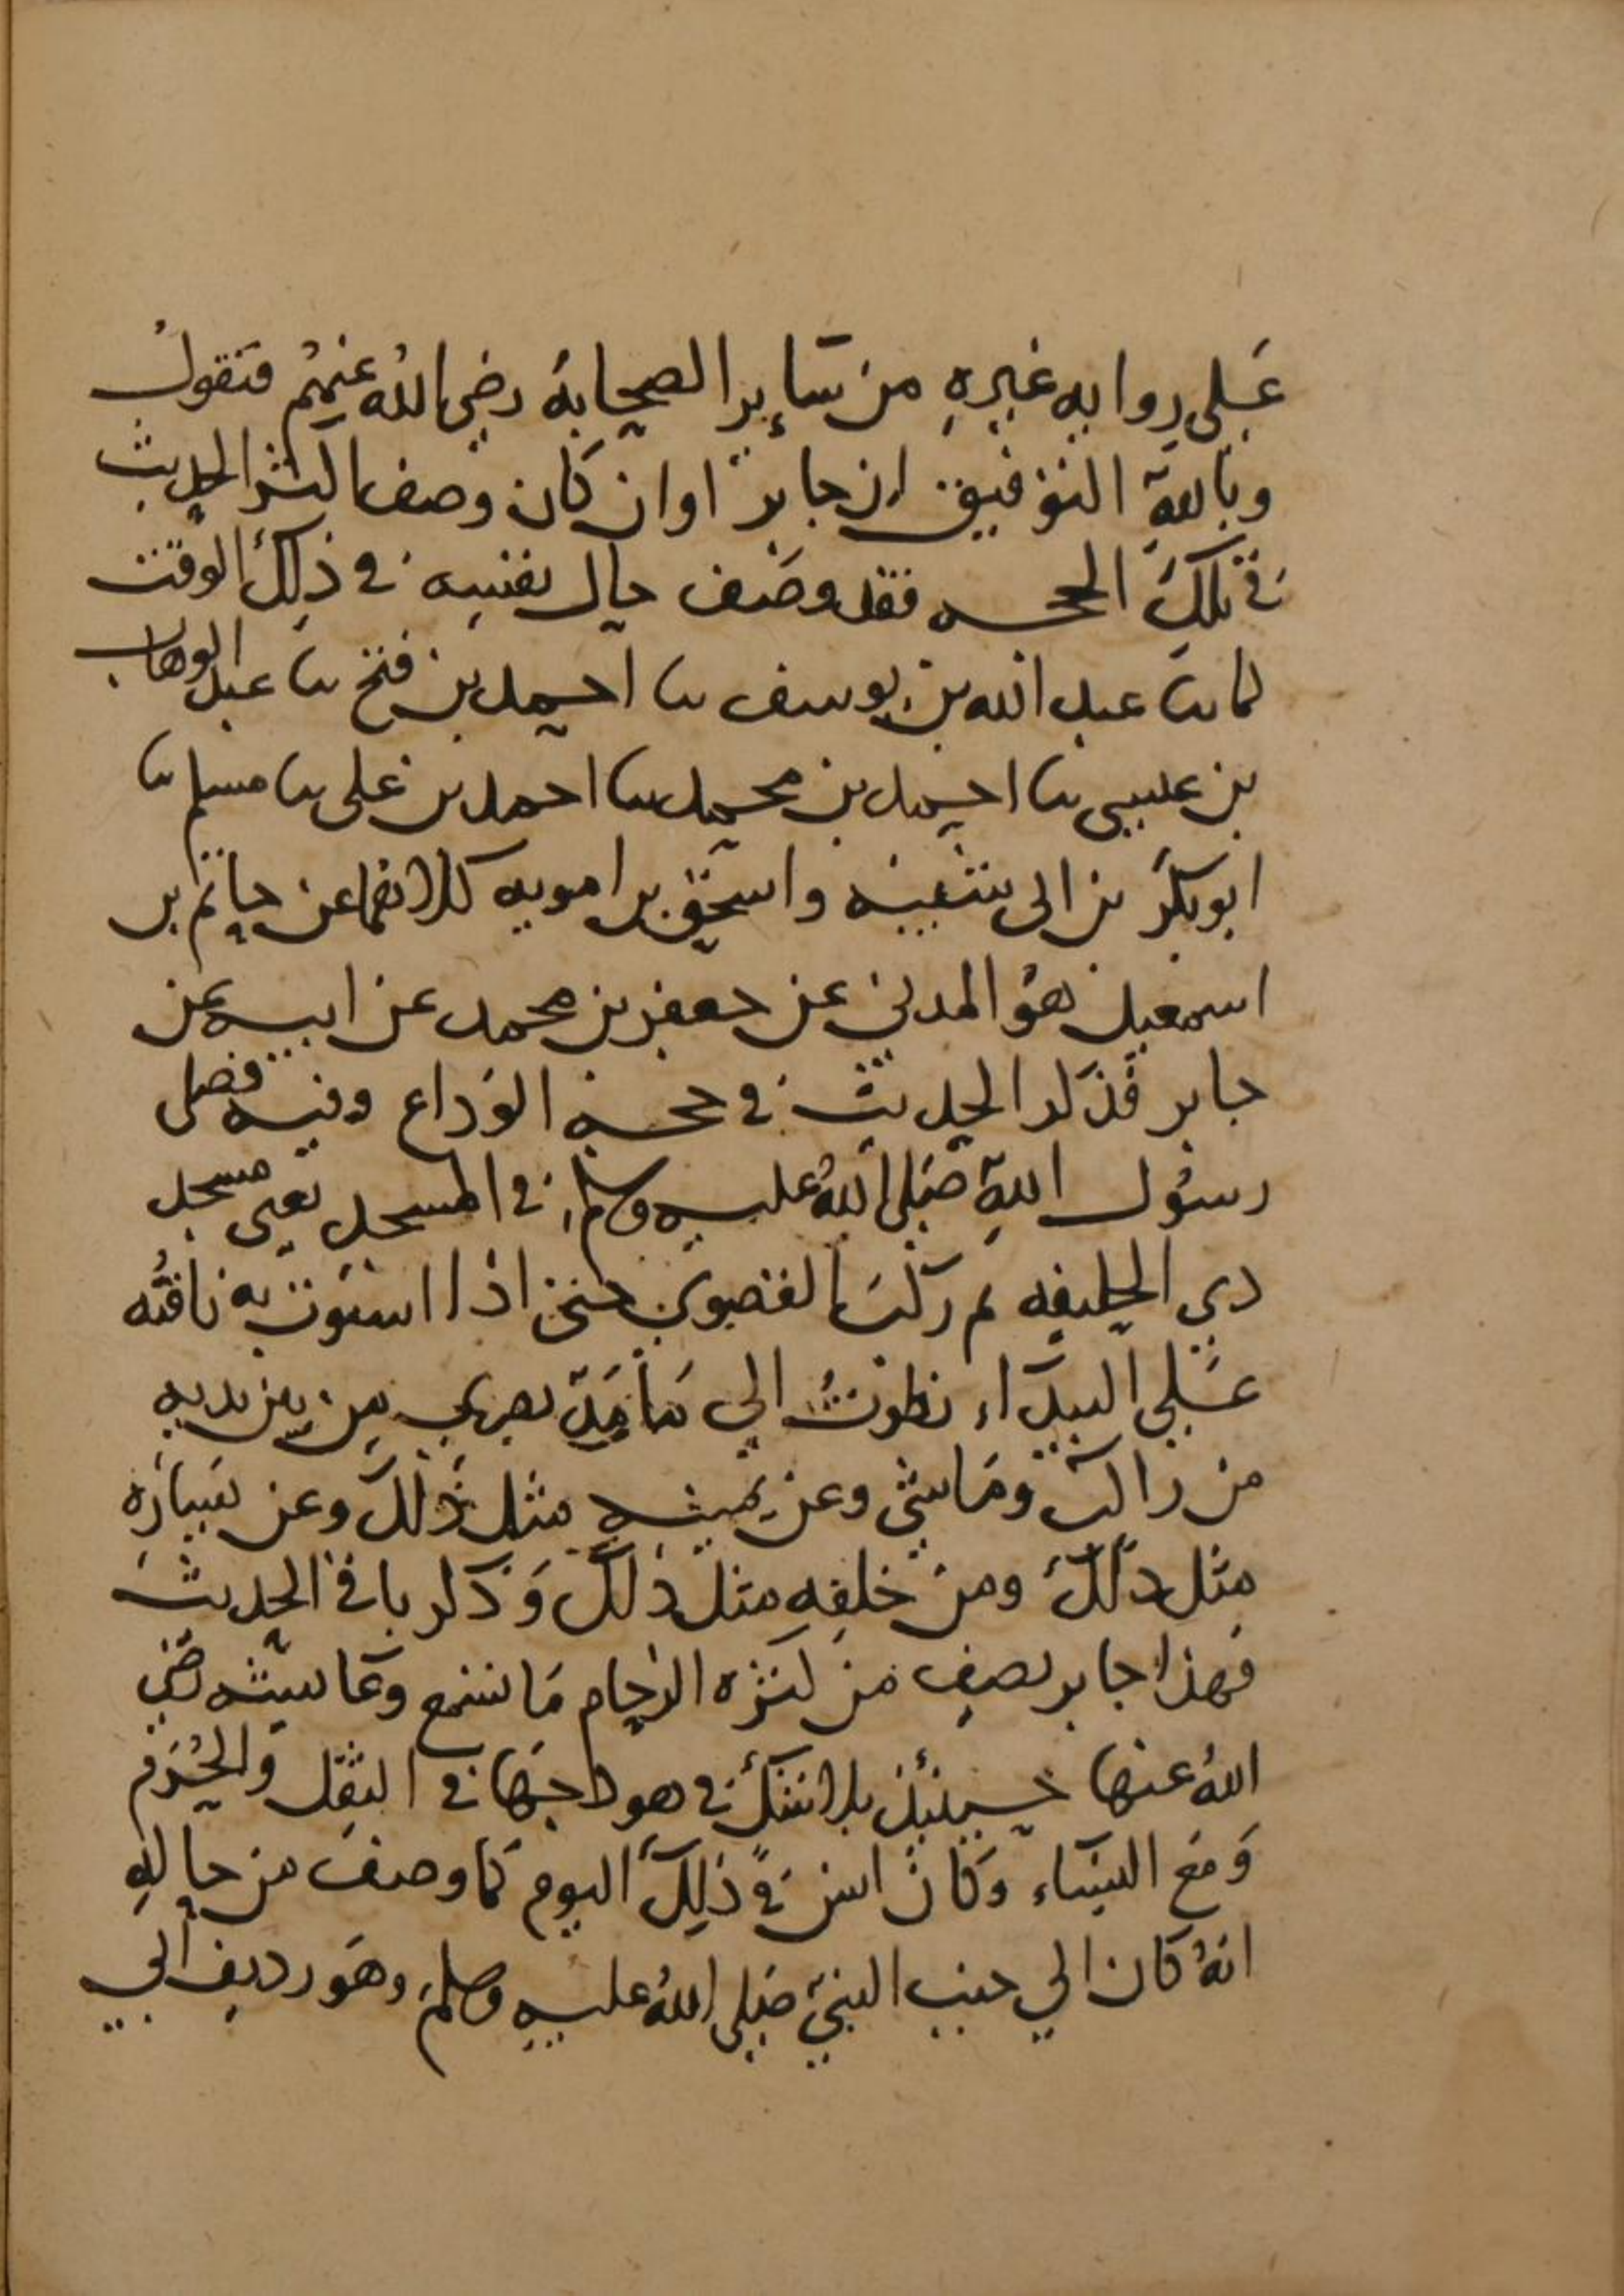 عَلى روايه غيرهِ من سَائر الصحابة رضي اللهُ عنهُم فنقولُ
وباللهِ التوفيق ان جابرًا وان كان وصف اكثر الحديث
في تلكَ الحجه فقد وصَف حال نفسه في ذلكَ الوقت
كما نا عبد الله بن يوسف نا احمد بن فتح نا عبد الوهاب
بن عيسى نا احمد بن محمد نا احمد بن علي نا مسلم نا
ابو بكر بن ابي شيبة واسحق بن راهويه كلاهما عن حاتم بن
اسمعيل هُو المدني عن جعفر بن محمد عن ابيه عن
جابر فذكر الحديث في حجة الوَداع وفيه فصلى
رسُول اللهِ صَلى اللهُ عليه وسلم في المسجد يعني مسجد
دي الحليفه ثم ركبَ القصوي حتى اذا استوت به ناقتُه
عَلي البيدَاء نظرتُ الي مَا مَدّ بصري مِن بين يديه
من راكب ومَاشي وعن يمينه مثل ذَلكَ وعن يَسارِه
مثل دلكَ ومن خلفِه مثل ذلكَ وَذكر باقي الحديث
فهذا جابر يصِف من كثره الزحام مَا تسمع وعَايشه رضي
اللهُ عنها حينئذ بلا شك في هودجها في الثقل والحُرَم
وَمَع النسَاء وَكان انس في ذلكَ اليوم كما وصفَ من حالهِ
انهُ كان الي جنب النبي صَلى اللهُ عليه وسلمَ وهَو رديف ابي